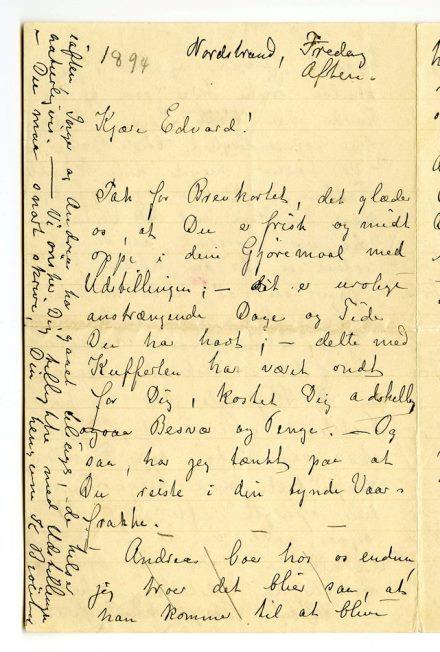 1894
Nordstrand, Fredag
Aften.
Kjære Edvard!
Tak for Brevkortet, det glæde
os, at Du er frisk og midt
oppe i dine Gjøremaal med
Udstillingen; – det er urolige
anstrængende Dage og Tide
Du har havt; – dette med
Kufferten har været ondt
for Dig, kostet Dig adskellig
ogsaa Besvær og Penge. – Og
saa, har jeg tænkt paa at
Du reiste i din tynde Vaar-
frakke. –
Andreas boer hos os endnu,
jeg troer det blir saa, at
han kommer til at blive
iaften. Inger og Andreas har gaaet tilsengs, – de hilser
naturligvis. — Vi ønske Dig til Lykke med Udstillingen
– Du maa snart skrive, Din hengivne K Bjølstad